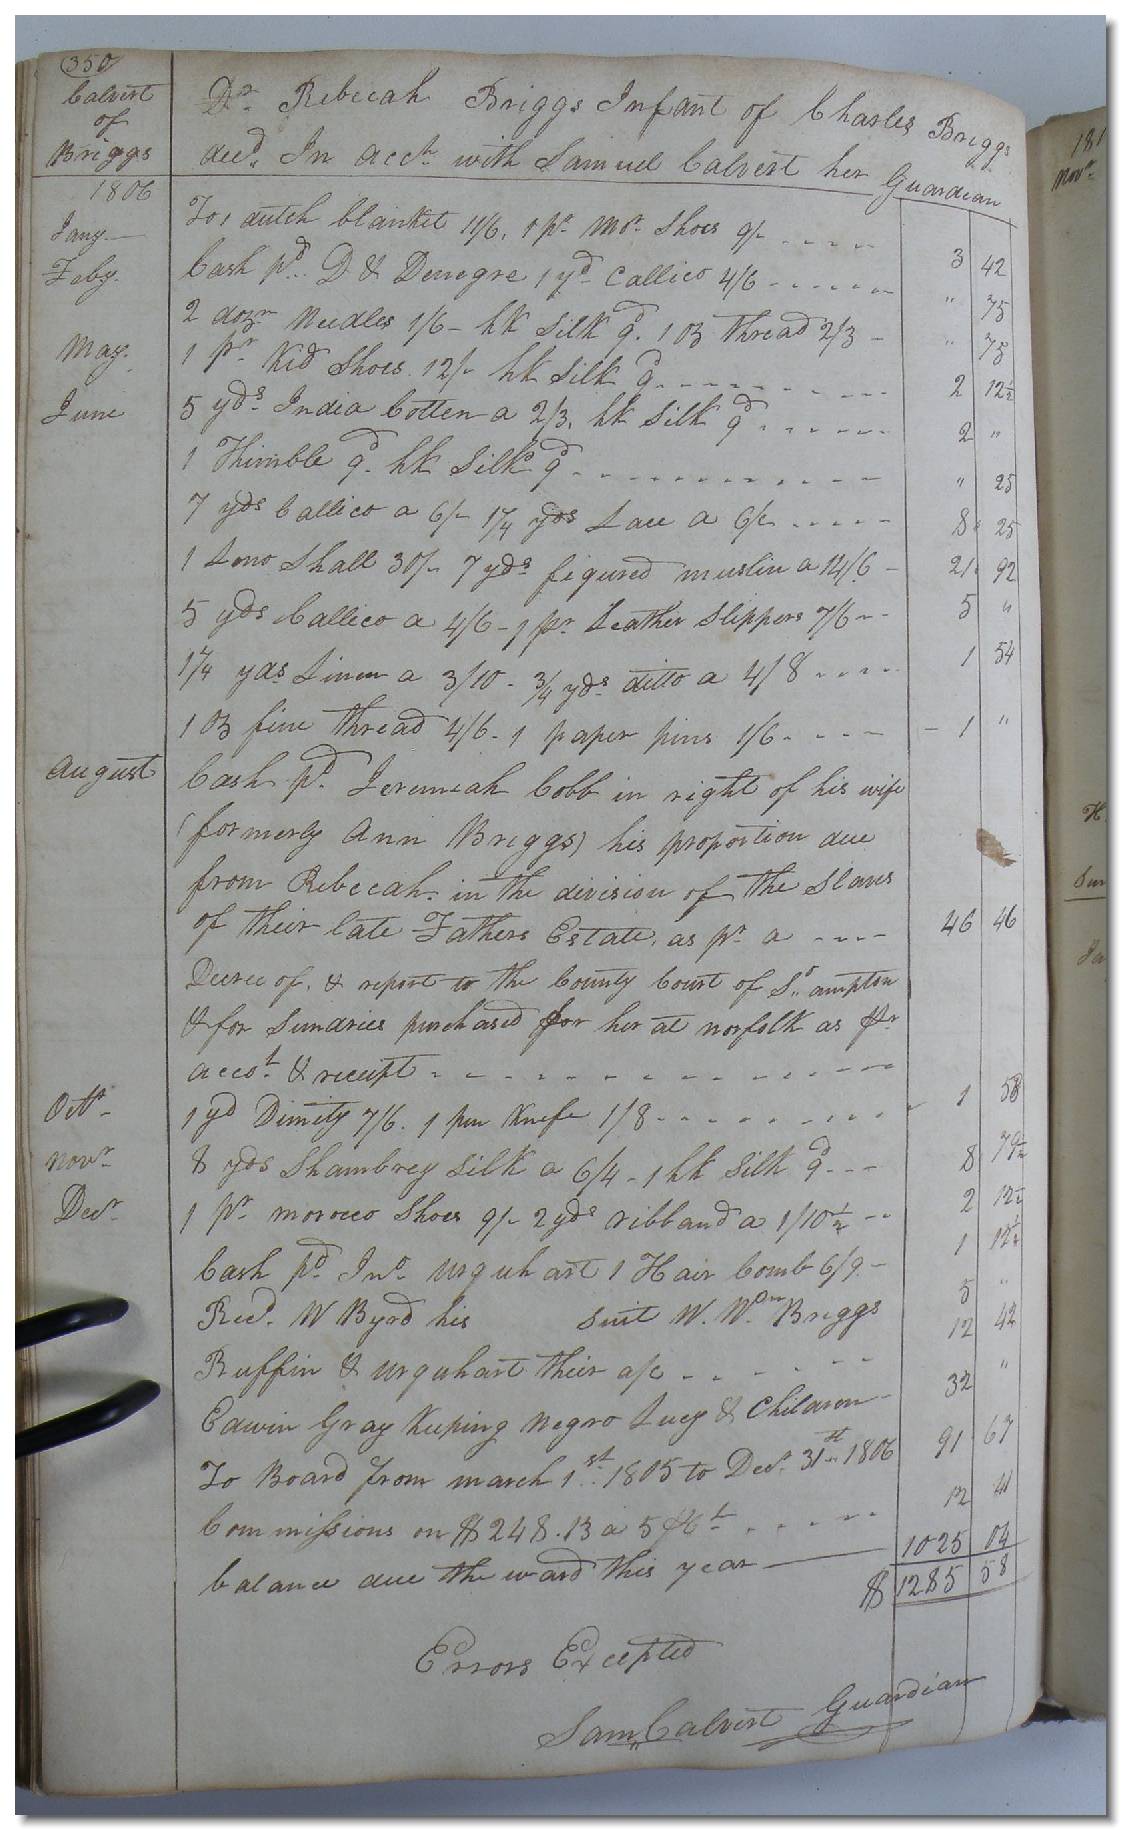 350
Calvert
of
Briggs
Dr. Rebecah Briggs Infant of Charles Briggs
decd. In acct. with Samuel Calvert her Guardian
1806
Jany To 1 dutch blanket 11/6, 1 pr. Mo. Shoes 9/- 3 42
Feby. Cash pd. D & Denegre 1 yd Callico 4/6 " 75
2 dozn Needles 1/6 - hk Silk 9d. 1 oz thread 2/3 - " 75
May. 1 pr Kid Shoes 12/- hk Silk 9d 2 12½
June 5 yds. India Cotten a 2/3, hk Silk 9d 2 "
1 Thimble 9d. hk Silk 9d " 25
7 yds Callico a 6/- 1¼ yds Lace a 6/- 8 25
1 Leno Shall 30/- 7 yds figured muslin a 14/6 - 21 92
5 yds Callico a 4/6 - 1 pr Leather Slippers 7/6 -- 5 "
1¼ yds Linen a 3/10 - ¾ yds ditto a 4/8 1 54
1 oz fine thread 4/6 - 1 paper pins 1/6 1 "
August Cash pd. Jeremiah Cobb in right of his wife
(formerly Ann Briggs) his proportion due
from Rebecah in the division of the Slaves
of their late Fathers Estate, as pr a 46 46
Decree of, & report to the County Court of So ampton
& for Sundries purchased for her at norfolk as pr
accot. & receipt
Octr. 1 yd Dimity 7/6. 1 pen Knife 1/8 1 58
Novr. 8 yds Shambrey Silk a 6/4 - 1 hk Silk 9d 8 79½
Decr. 1 pr. morocco Shoes 9/- 2 yds ribband a 1/10½ -- 2 12½
Cash pd Jno. Urquhart 1 Hair Comb 6/9 - 1 12½
Recd. W Byrd his Suit W. Wm Briggs 5 "
Ruffin & Urquhart their a/c 12 42
Edwin Gray Keeping Negro Lucy & Children 32 "
To Board from march 1st. 1805 to Decr. 31st 1806 91 67
Commissions on $248.13 a 5 pCt 12 41
balance due the ward this year 1025 04
$ 1285 58
Errors Excepted
Sam Calvert Guardian
181
Novr.